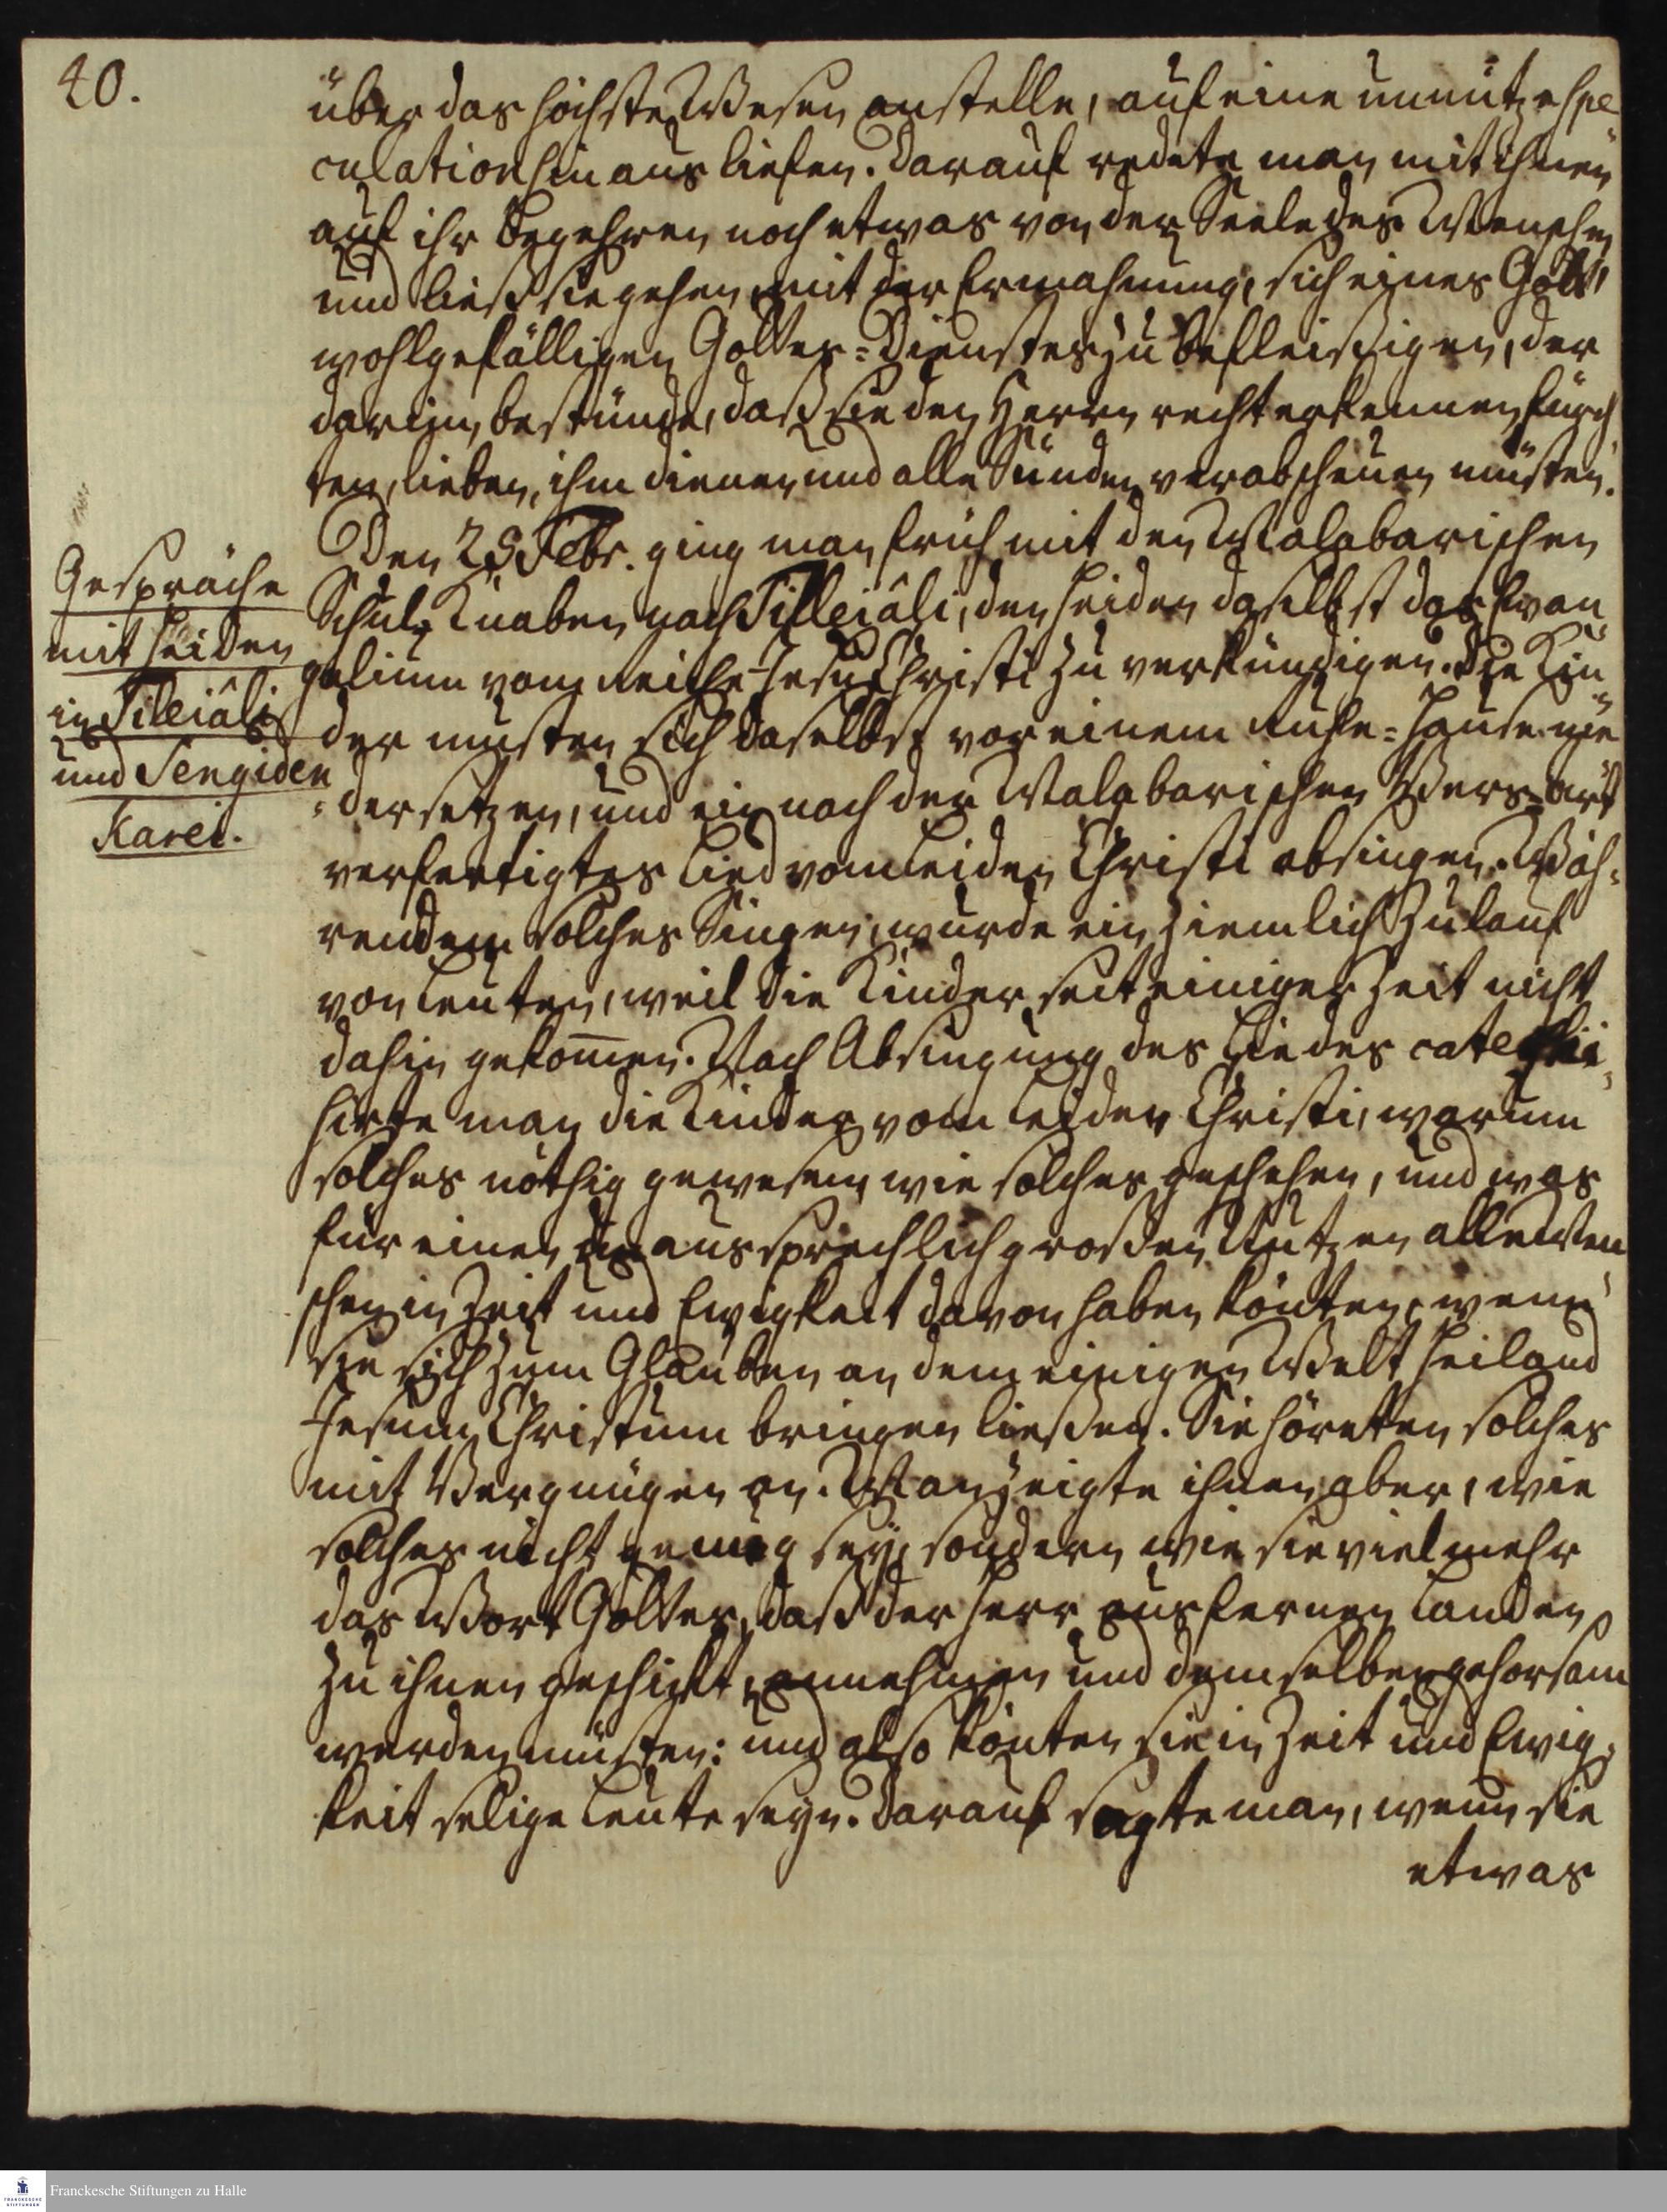 40.
über das höchste Wesen anstelle, auf eine unnütze spe
culation hinaus liefen. Darauf redete man mit ihnen
auf ihr Begehren noch etwas von der Seele des Menschen
und ließ sie gehen mit der Ermahnung, sich eines Gott
wohlgefälligen Gottes=Dienstes zu befleißigen, der
darinn bestünde, daß sie den Herrn recht erkennen, fürch
ten, lieben, ihm dienen und alle Sünden verabscheuen müsten.
Den 25 Febr. ging man früh mit den Malabarischen
Schul=Knaben nach Tilleiâli, den Heiden daselbst das Evan
gelium vom Reiche Jesu Christi zu verkündigen. Die Kin
der musten sich daselbst vor einem Ruhe=Hause nie
=der setzen, und ein nach der Malabarischen Vers=art
verfertigtes Lied vom Leiden Christi absingen. Wäh=
rendem solches Singen, wurde ein ziemlich Zulauf
von Leuten, weil die Kinder seit einiger Zeit nicht
dahin gekommen. Nach Absingung des Liedes catechi=
sirte man die Kinder vom Leiden Christi, warum
solches nöthig gewesen, wie solches geschehen, und was
für einen unaussprechlich großen Nutzen alle Men
schen in Zeit und Ewigkeit davon haben könten, wenn
sie sich zum Glauben an dem einigen Welt Heiland
Jesum Christum bringen ließen. Sie höreten solches
mit Vergnügen an. Man zeigte ihnen aber, wie
solches nicht genug sey, sondern wie sie vielmehr
das Wort Gottes, daß der Herr aus fernen Landen
zu ihnen geschickt, annehmen und demselben gehorsam
werden müsten: und also könten sie in Zeit und Ewig=
keit selige Leute seyn. Darauf sagte man, wenn sie
etwas
Gespräche
mit Heiden
in Tileiâli
und Sengiden
Karei.
Franckesche Stiftungen zu Halle
FRANCKESCHE
STIFTUNGEN